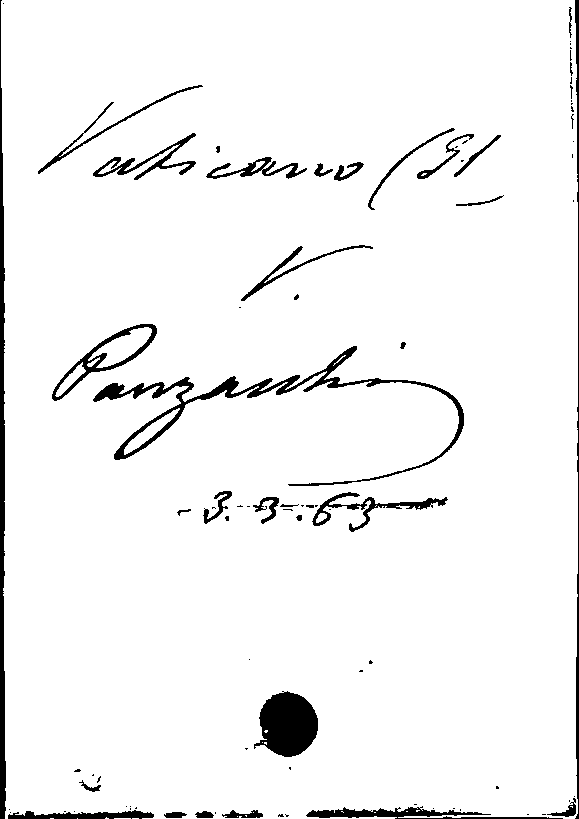 Vaticano (Il
V.
Panzacchi
3.3.63